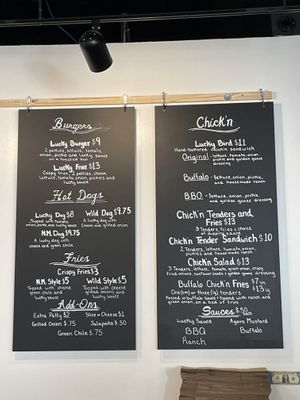 Burgers
Lucky Burger $9
2 patties, lettuce, tomato,
onion, pickle and lucky sauce
on a toasted bun
Lucky Fries $13
Crispy fries, 2 patties, cheese,
lettuce, tomato, onion, pickles and
lucky sauce
Hot Dogs
Lucky Dog $8
lucky sauce
Wild Dog $9.75
A lucky dog with
cheese and grilled onion
N.M. Dog $9.75
A lucky dog with
cheese and green chile
Fries
Crispy Fries $3
N.M. Style $5
Topped with cheese
green chile and
lucky sauce
Wild Style $5
Topped with cheese
grilled onion and
lucky sauce
Add-Ons
Extra Patty $2
Slice of Cheese $1
Grilled Onions $.75
Jalapeño $.50
Green Chile $.75
Chick'n
Lucky Bird $11
Hand-tossed chicken sandwich
Original - lettuce, tomato, onion,
pickle and
dressing
Buffalo - lettuce, onion, pickle,
and homemade ranch
B.B.Q. - lettuce, onion, pickle,
and dressing
Chick'n Tenders and
Fries $13
3 Tenders, fries & choice
of dipping sauce
Chick'n Tender Sandwich $10
2 Tenders, lettuce, tomato, onion,
pickle and
Chick'n Salad $13
3 Tenders, lettuce, tomato, green onion, crispy
Buffalo Chick'n Fries $7 1/n
One (1/n) or three (3/n) tenders $13 3/n
tossed in buffalo sauce topped with ranch and
green onion, on a bed of fries
Sauces
Lucky Sauce
Agave Mustard
BBQ
Buffalo
Ranch